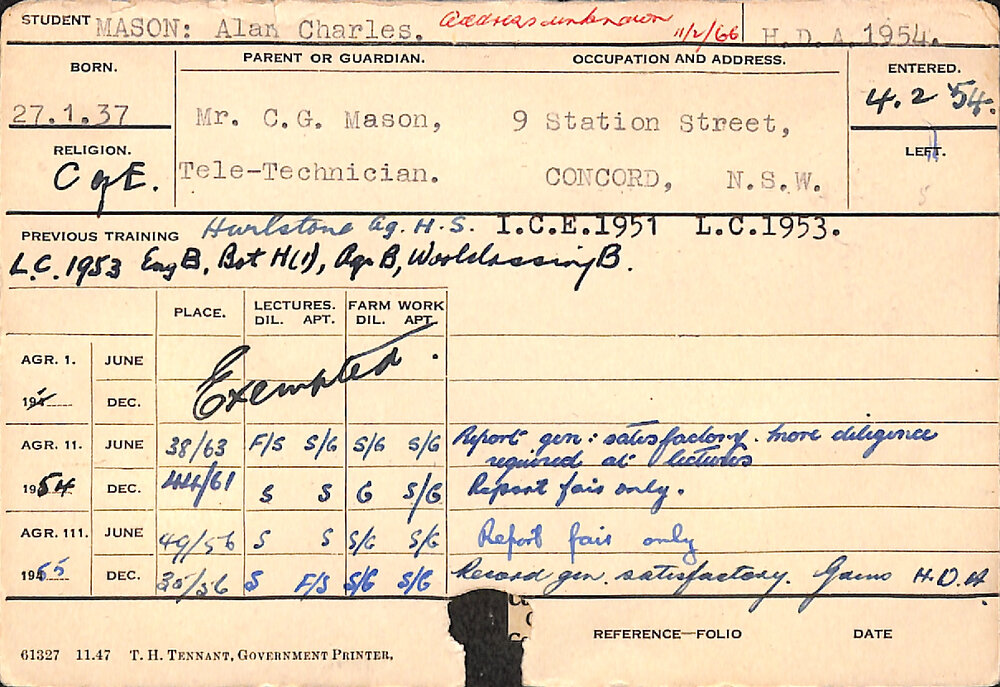 STUDENT MASON: Alan Charles. Address unknown 11/2/66 H.D.A. 1954.
BORN. PARENT OR GUARDIAN. OCCUPATION AND ADDRESS. ENTERED.
27.1.37 Mr. C.G. Mason, 9 Station Street, 4.2.54.
RELIGION. LEFT.
C of E. Tele-Technician. CONCORD, N.S.W.
PREVIOUS TRAINING Hurlstone Ag. H.S. I.C.E.1951 L.C.1953.
L.C. 1953 Eng B, Bot H(1), Agr B, Woolclassing B.
PLACE. LECTURES. FARM WORK
DIL. APT. DIL. APT.
AGR. 1. JUNE Exempted.
19 DEC.
AGR. 11. JUNE 38/63 F/S S/G S/G S/G Report gen: satisfactory. More diligence
required at lectures
1954 DEC. 44/61 S S G S/G Report fair only.
AGR. 111. JUNE 49/56 S S S/G S/G Report fair only
1955 DEC. 35/56 S F/S S/G S/G Record gen. satisfactory. Gains H.D.A.
REFERENCE—FOLIO DATE
61327 11.47 T. H. TENNANT, GOVERNMENT PRINTER.